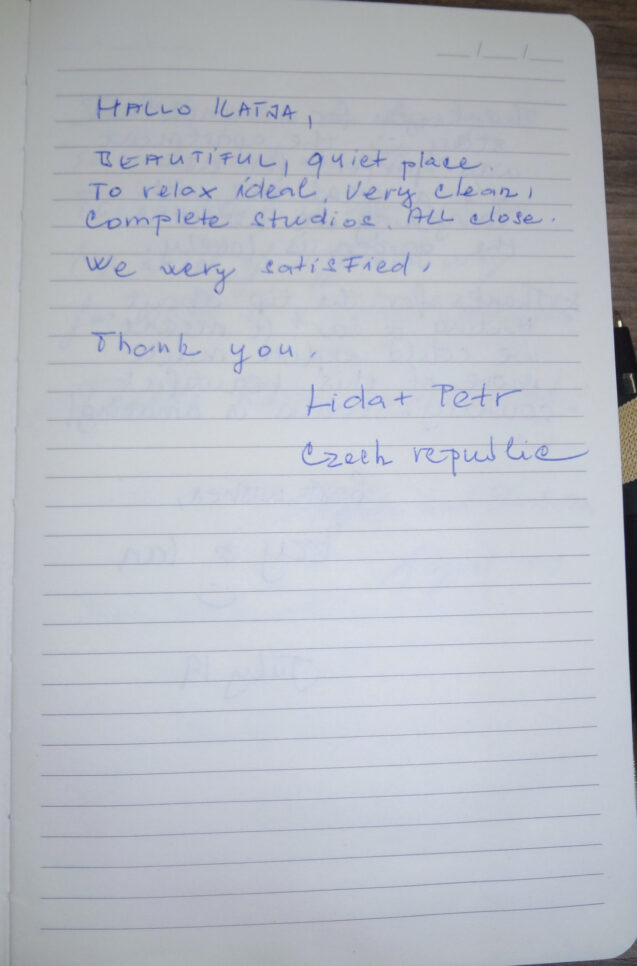 HALLO KATJA,
BEAUTIFUL, quiet place.
To relax ideal, very clean,
complete studios. ALL close.
We very satisfied,
Thank you.
Lida + Petr
Czech republic